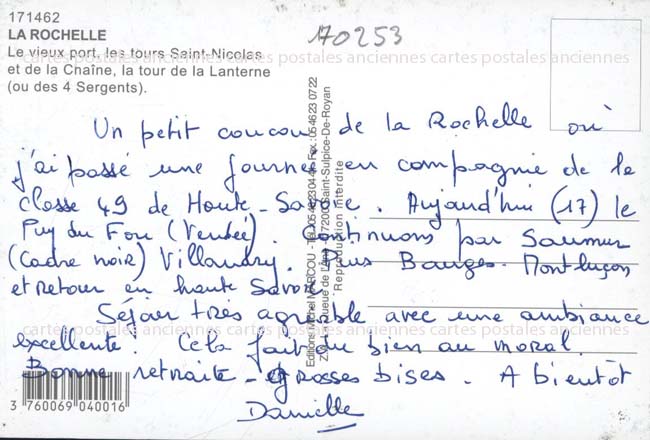 171462
LA ROCHELLE
Le vieux port, les tours Saint-Nicolas
et de la Chaîne, la tour de la Lanterne
(ou des 4 Sergents).
170253
cartes postales anciennes cartes postales anciennes cartes postales anciennes
Un petit coucou de la Rochelle où
j'ai passé une journée en compagnie de la
classe 49 de Haute-Savoie. Aujourd'hui (17) le
Puy du Fou (Vendée). Continuons par Saumur
(Cadre noir) Villandry. Bourges-Montluçon
et retour en haute Savoie
Séjour très agréable avec une ambiance
excellente! Cela fait du bien au moral.
Bonne retraite - grosses bises. A bientôt
Danielle
cartes postales anciennes cartes postales anciennes cartes postales anciennes
Editions Michel MARCOU
Saint-Sulpice-De-Royan
Reproduction interdite
3 760069 040016